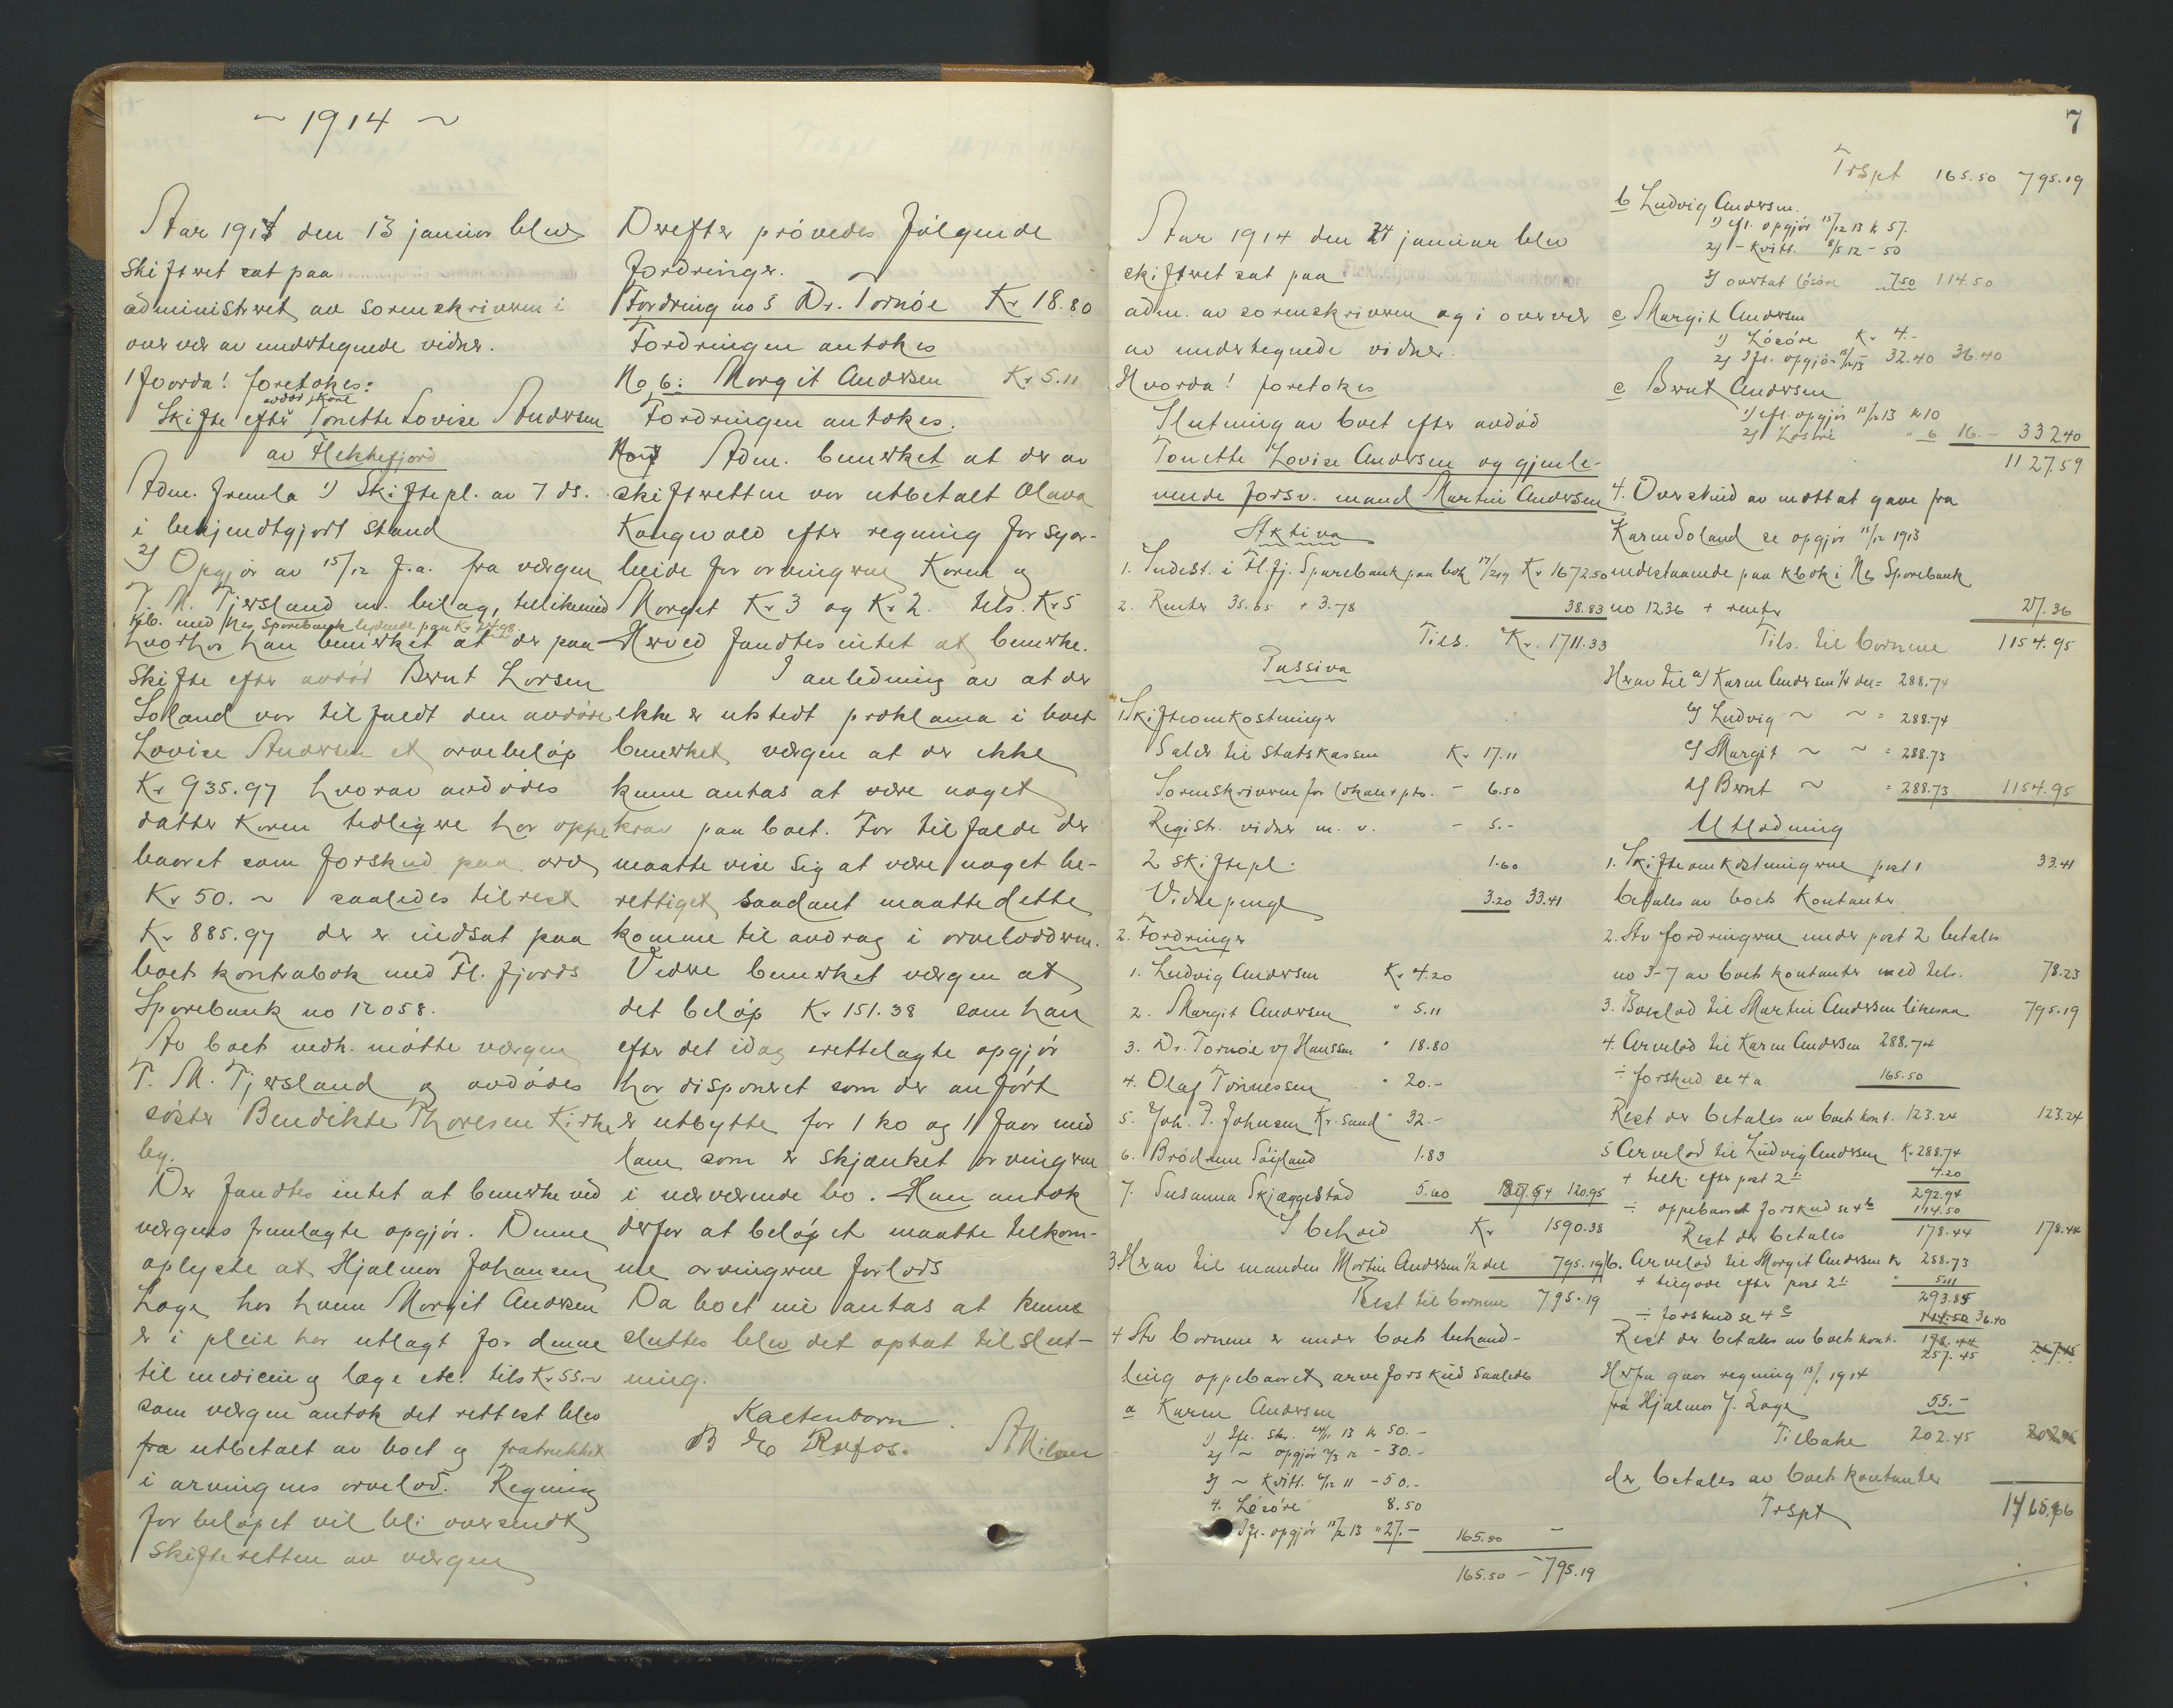 ~ 1914 ~
Aar 1914 den 13 januar blev
skifteret sat paa
administreret av sorenskriveren i
overvær av undertegnede vidner.
Hvorda! foretokes:
avdød kone
Skifte efter Tonette Lovise Andersen
av Flekkefjord
Adm. fremla 1) Skiftepl. av 7 ds.
i bekjendtgjort stand
2) Opgjør av 15/12 f.a. fra værgen
T. M. Tjersland m. bilag, tillikemed
kb. med Nes Sparebank lydende paa Kr. 27.98.
hvorhos han bemerket at der paa
Skifte efter avdød Bernt Larsen
Soland var tilfaldt den avdøde
Lovise Andersen et arvebeløp
Kr 935.97 hvorav avdødes
datter Karen tidligere har oppe
baaret som forskud paa arv
Kr 50. ~ saaledes tilrest
Kr 885.97 der er indsat paa
boets kontrabok med Fl. fjords
Sparebank no 12058.
Av boets vedk. møtte værgen
T. M. Tjersland og avdødes
søster Bendikte Thoresen Kirke
by.
Der fandtes intet at bemerke ved
værgens fremlagte opgjør. Denne
oplyste at Hjalmar Johansen
Laga hos hvem Margit Andersen
er i pleie har utlagt for denne
til medicin og læge etc. tils Kr. 55.~
som værgen antok det rettest blev
fra utbetalt av boet og fratrukket
i arvingens arvelod. Regning
for beløpet vil bli oversendt
skifteretten av værgen
Derefter prøvedes følgende
fordringer.
Fordring no 5 Dr. Tornøe Kr 18.80
Fordringen antokes
No 6: Margit Andersen Kr 5.11
Fordringen antokes.
No 7 Adm. bemerket at der av
skifteretten var utbetalt Olava
Kongevold efter regning for syar-
beide for arvingerne Karen og
Margit Kr 3 og Kr 2. tils. Kr 5
Herved fandtes intet at bemerke.
I anledning av at der
ikke er utstedt proklama i boet
bemerket værgen at der ikke
kunne antas at være noget
krav paa boet. For tilfælde der
maatte vise sig at være noget be-
rettiget saadant maatte dette
komme til avdrag i arveloddene.
Videre bemerket værgen at
det beløp Kr 151.38 som han
efter det idag rettelagte opgjør
har disponeret som der anført
er utbytte for 1 ko og 1 faar med
lam som er skjænket arvingerne
i nærværende bo. Han antok
derfor at beløpet maatte tilkom-
me arvingerne forlods
Da boet nu antas at kunne
sluttes blev det optat til slut-
ning.
Kaltenborn.
B Refos. A Nilsen
7
Aar 1914 den 24 januar blev
skifteret sat paa Flekkefjords Sorenskriverkontor
adm. av sorenskriveren og i overvær
av undertegnede vidner.
Hvorda! foretokes
Slutning av boet efter avdød
Tonette Lovise Andersen og gjenle-
vende forsv. mand Martin Andersen
Aktiva
1. Indest. i Fl. fj. Sparebank paa bok Kr 1672.50
2. Renter 35.05 + 3.78 38.83
Tils. Kr. 1711.33
Passiva
1. Skifteomkostninger
Salær til statskassen Kr 17.11
Sorenskriveren for lokale + pto. - 6.50
Registr. vidner m. v. - 5.-
2 skiftepl. 1.60
Vidnepenge 3.20 33.41
2. Fordringer
1. Ludvig Andersen Kr 4.20
2. Margit Andersen " 5.11
3. Dr. Tornøe v/ Hanssen " 18.80
4. Olaf Tønnessen " 20.-
5. Joh. P. Johnsen Kr. Sand " 32.-
6. Brødrene Søyland 1.83
7. Susanna Skjæggestad 5.00 120.95
I behold Kr 1590.38
3 Herav til manden Martin Andersen 1/2 del 795.19
Rest til børnene 795.19
4 Av børnene er under boets behand-
ling oppebaaret arveforskud saaledes
a Karen Andersen
1) Ifl. skr. 24/11 13 kr 50.-
2) ~ opgjør 12/3 12 - 30.-
3) ~ kvitt. 4/12 11 - 50.-
4. Løsøre 8.50
Ifl. opgjør 15/12 13 " 27.- 165.50 -
165.50 - 795.19
Trspt 165.50 795.19
b Ludvig Andersen.
1) efl. opgjør 15/12 13 k 57.
2) - kvitt. 8/5 12 - 50
3) overtat løsøre 7.50 114.50
c Margit Andersen
1) Løsøre Kr 4.-
2) Ifl. opgjør 15/12 13 32.40 36.40
c Bernt Andersen
1) efl. opgjør 15/12 13 kr 10
2) Løsøre " 6 16.- 332.40
1127.59
4. Overskud av mottat gave fra
Karen Soland se opgjør 15/12 1913
indestaaende paa kbok i Nes Sparebank
no 1236 + renter 27.36
Tils. til børnene 1154.95
Herav til a) Karen Andersen 1/4 del = 288.74
b) Ludvig ~ ~ = 288.74
c) Margit ~ ~ = 288.73
d) Bernt ~ = 288.73 1154.95
Utlodning
1. Skifteomkostningerne post 1 33.41
betales av boets kontanter
2. Av fordringerne under post 2 betales
no 3-7 av boets kontanter med tils. 78.23
3. Boslod til Martin Andersen likesaa 795.19
4. Arvelod til Karen Andersen 288.74
÷ forskud se 4 a 165.50
Rest der betales av boets kont. 123.24 123.24
5 Arvelod til Ludvig Andersen Kr 288.74
+ tilk. efter post 2 1: 4.20
292.94
÷ oppebaaret forskud se 4 b 114.50
Rest der betales 178.44 178.44
6. Arvelod til Margit Andersen kr 288.73
+ tilgode efter post 2 " 5.11
293.85
÷ forskud se 4 c 114.50 36.40
Rest der betales av boets kont. 178.44
257.45 257.45
Herfra gaar regning 15/1 1914
fra Hjalmar J. Laga 55.-
Tilbake 202.45
der betales av boets kontanter
Trspt